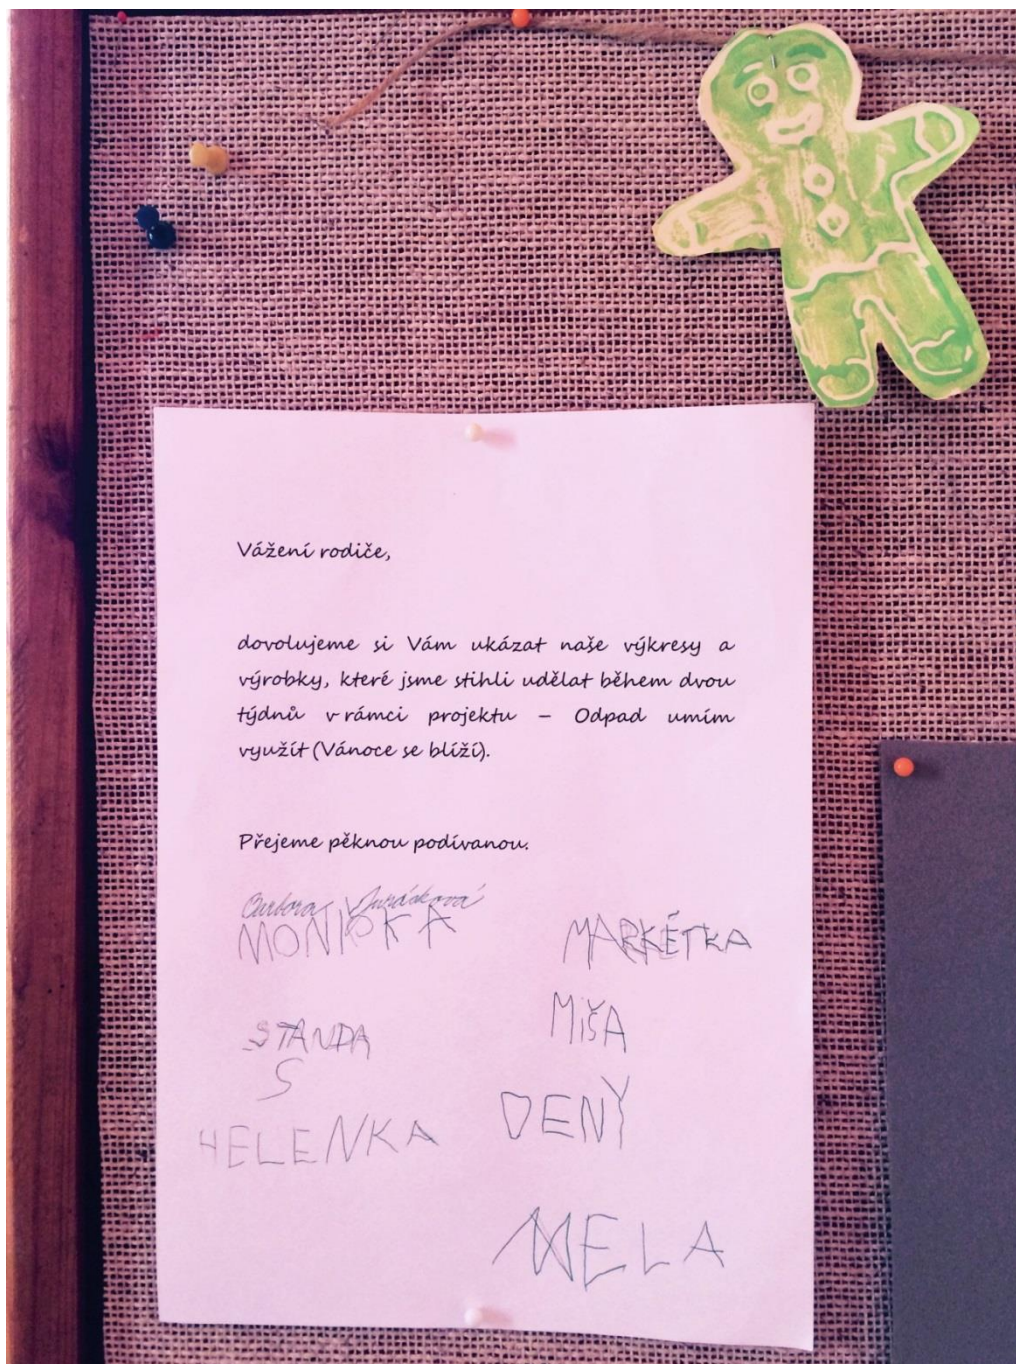 Vážení rodiče,
dovolujeme si Vám ukázat naše výkresy a
výrobky, které jsme stihli udělat během dvou
týdnů v rámci projektu – Odpad umím
využít (Vánoce se blíží).
Přejeme pěknou podívanou.
Barbora
MONIČKA
MARKÉTKA
STANDA
S
MIŠA
HELENKA
DENY
MELA